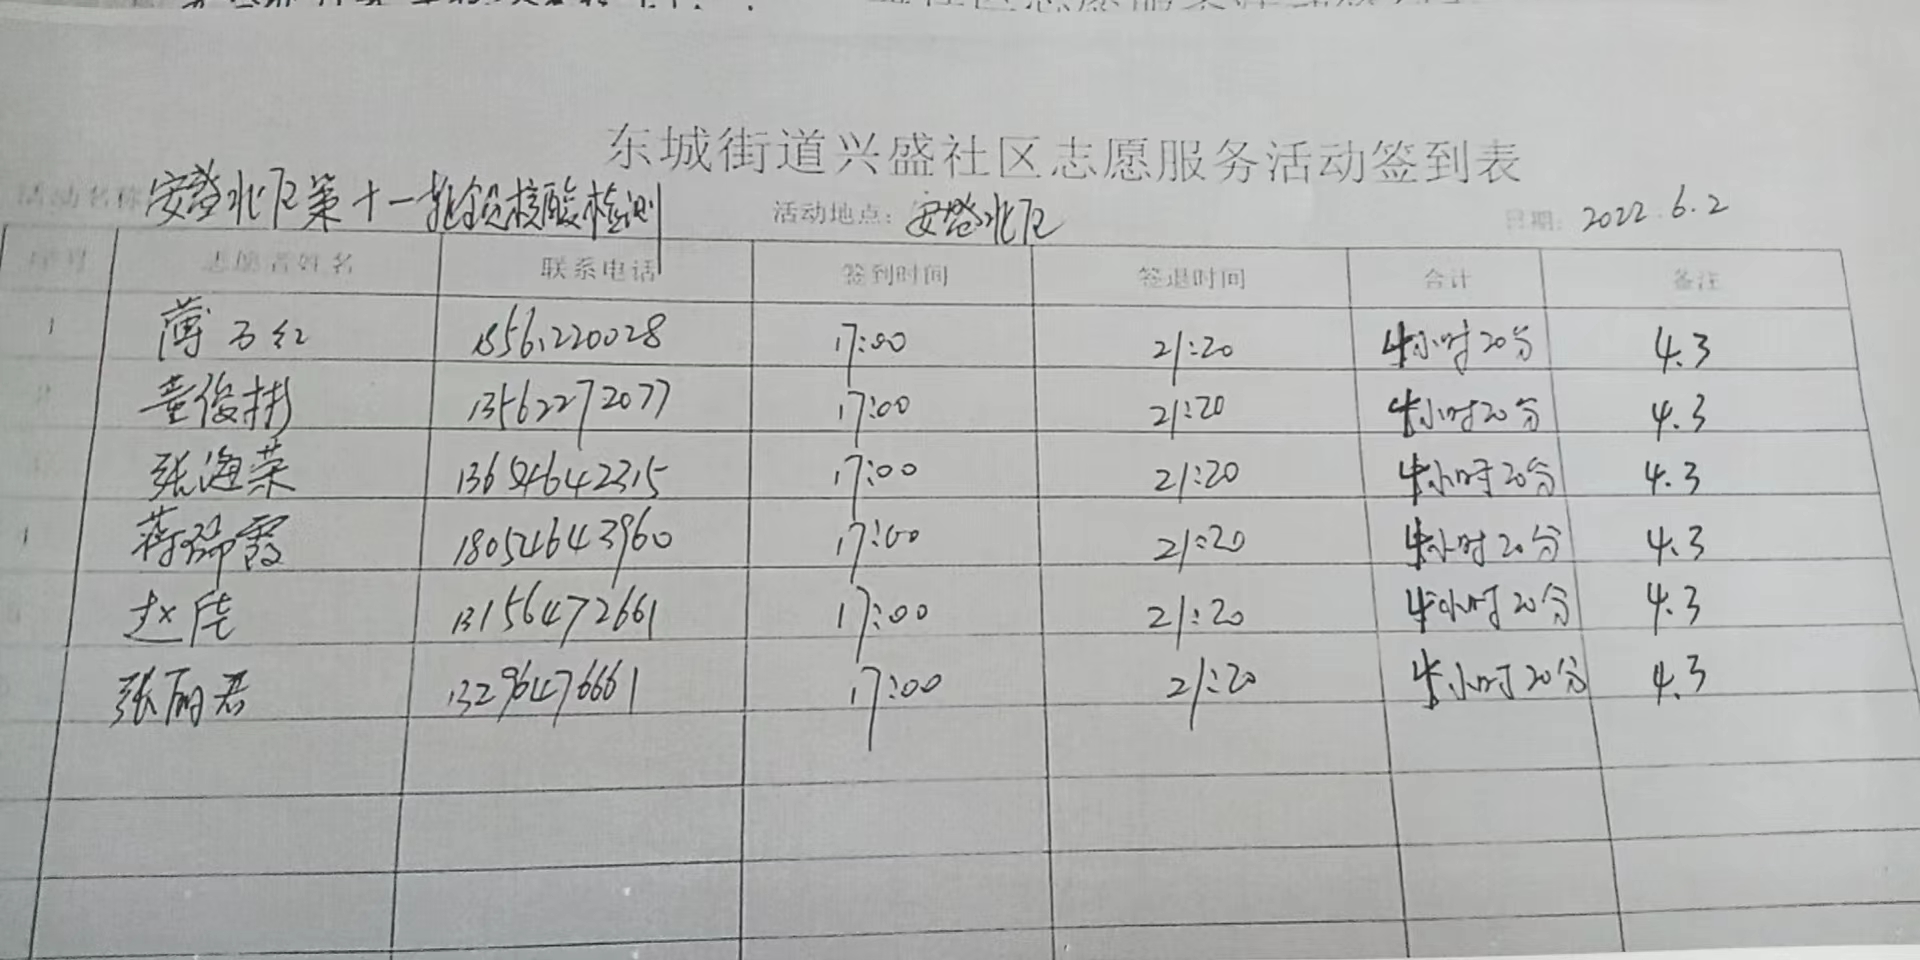 东城街道兴盛社区志愿服务活动签到表
活动名称 安登北区第十一轮全员核酸检测 活动地点: 安登北区 日期: 2022.6.2
序号 志愿者姓名 联系电话 签到时间 签退时间 合计 备注
1 薄万红 17:00 21:20 4小时20分 4.3
童俊彬 13562272077 17:00 21:20 4小时20分 4.3
张海荣 13654642315 17:00 21:20 4小时20分 4.3
蒋瑞霞 18054643960 17:00 21:20 4小时20分 4.3
赵佳 13156472661 17:00 21:20 4小时20分 4.3
张丽君 13296476661 17:00 21:20 4小时20分 4.3